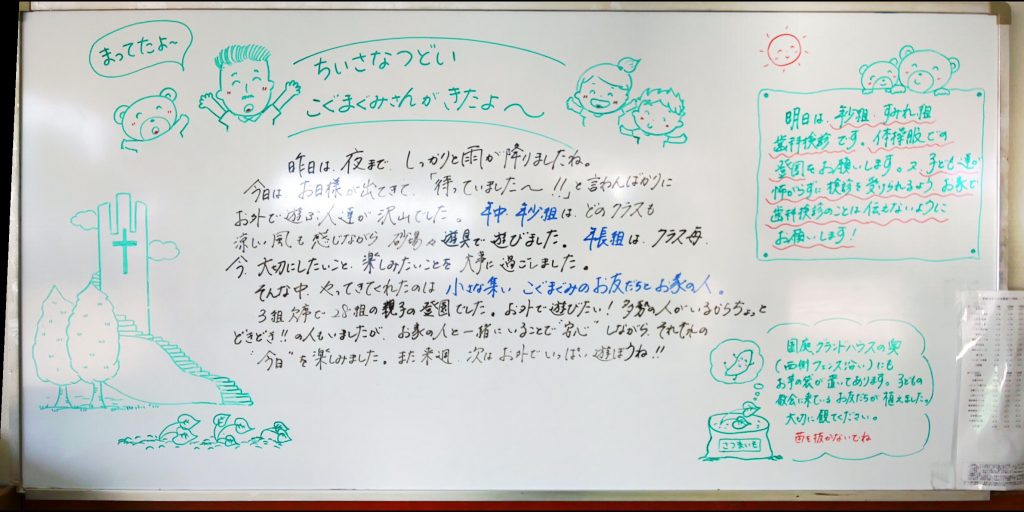 まってたよ～
ちいさなつどい
こぐまぐみさんが きたよ～
昨日は、夜まで しっかりと雨が降りましたね。
今日は お日様が出てきて、「待っていました～!!」と言わんばかりに
お外で遊ぶ人達が沢山でした。年中・年少組は、どのクラスも
涼しい風も感じながら 砂場や遊具で遊びました。年長組は、クラス毎、
今、大切にしたいこと、楽しみたいことを大事に過ごしました。
そんな中、やってきてくれたのは 小さな集い こぐまぐみのお友だちとお家の人。
3組欠席で28組の親子の登園でした。お外で遊びたい! 多勢の人がいるからちょっと
どきどき!! の人もいましたが、お家の人と一緒にいることで"安心"しながら それぞれの
"今日"を楽しみました。また来週、次はお外でいっぱい遊ぼうね!!
明日は、年少組、すみれ組
歯科検診です。体操服での
登園をお願いします。又、子ども達が
怖がらずに検診を受けられるよう お家で
歯科検診のことは伝えないように
お願いします!
園庭グランドハウスの奥
(西側フェンス沿い)にも
お芋の袋が置いてあります。子どもの
教会に来ているお友だちが植えました。
大切に観てください。
苗を抜かないでね
さつまいも